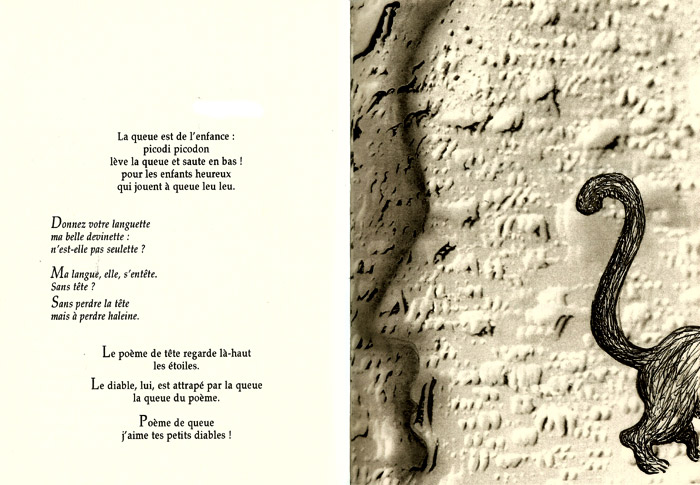 La queue est de l'enfance :
picodi picodon
lève la queue et saute en bas !
pour les enfants heureux
qui jouent à queue leu leu.
Donnez votre languette
ma belle devinette :
n'est-elle pas seulette ?
Ma langue, elle, s'entête.
Sans tête ?
Sans perdre la tête
mais à perdre haleine.
Le poème de tête regarde là-haut
les étoiles.
Le diable, lui, est attrapé par la queue
la queue du poème.
Poème de queue
j'aime tes petits diables !